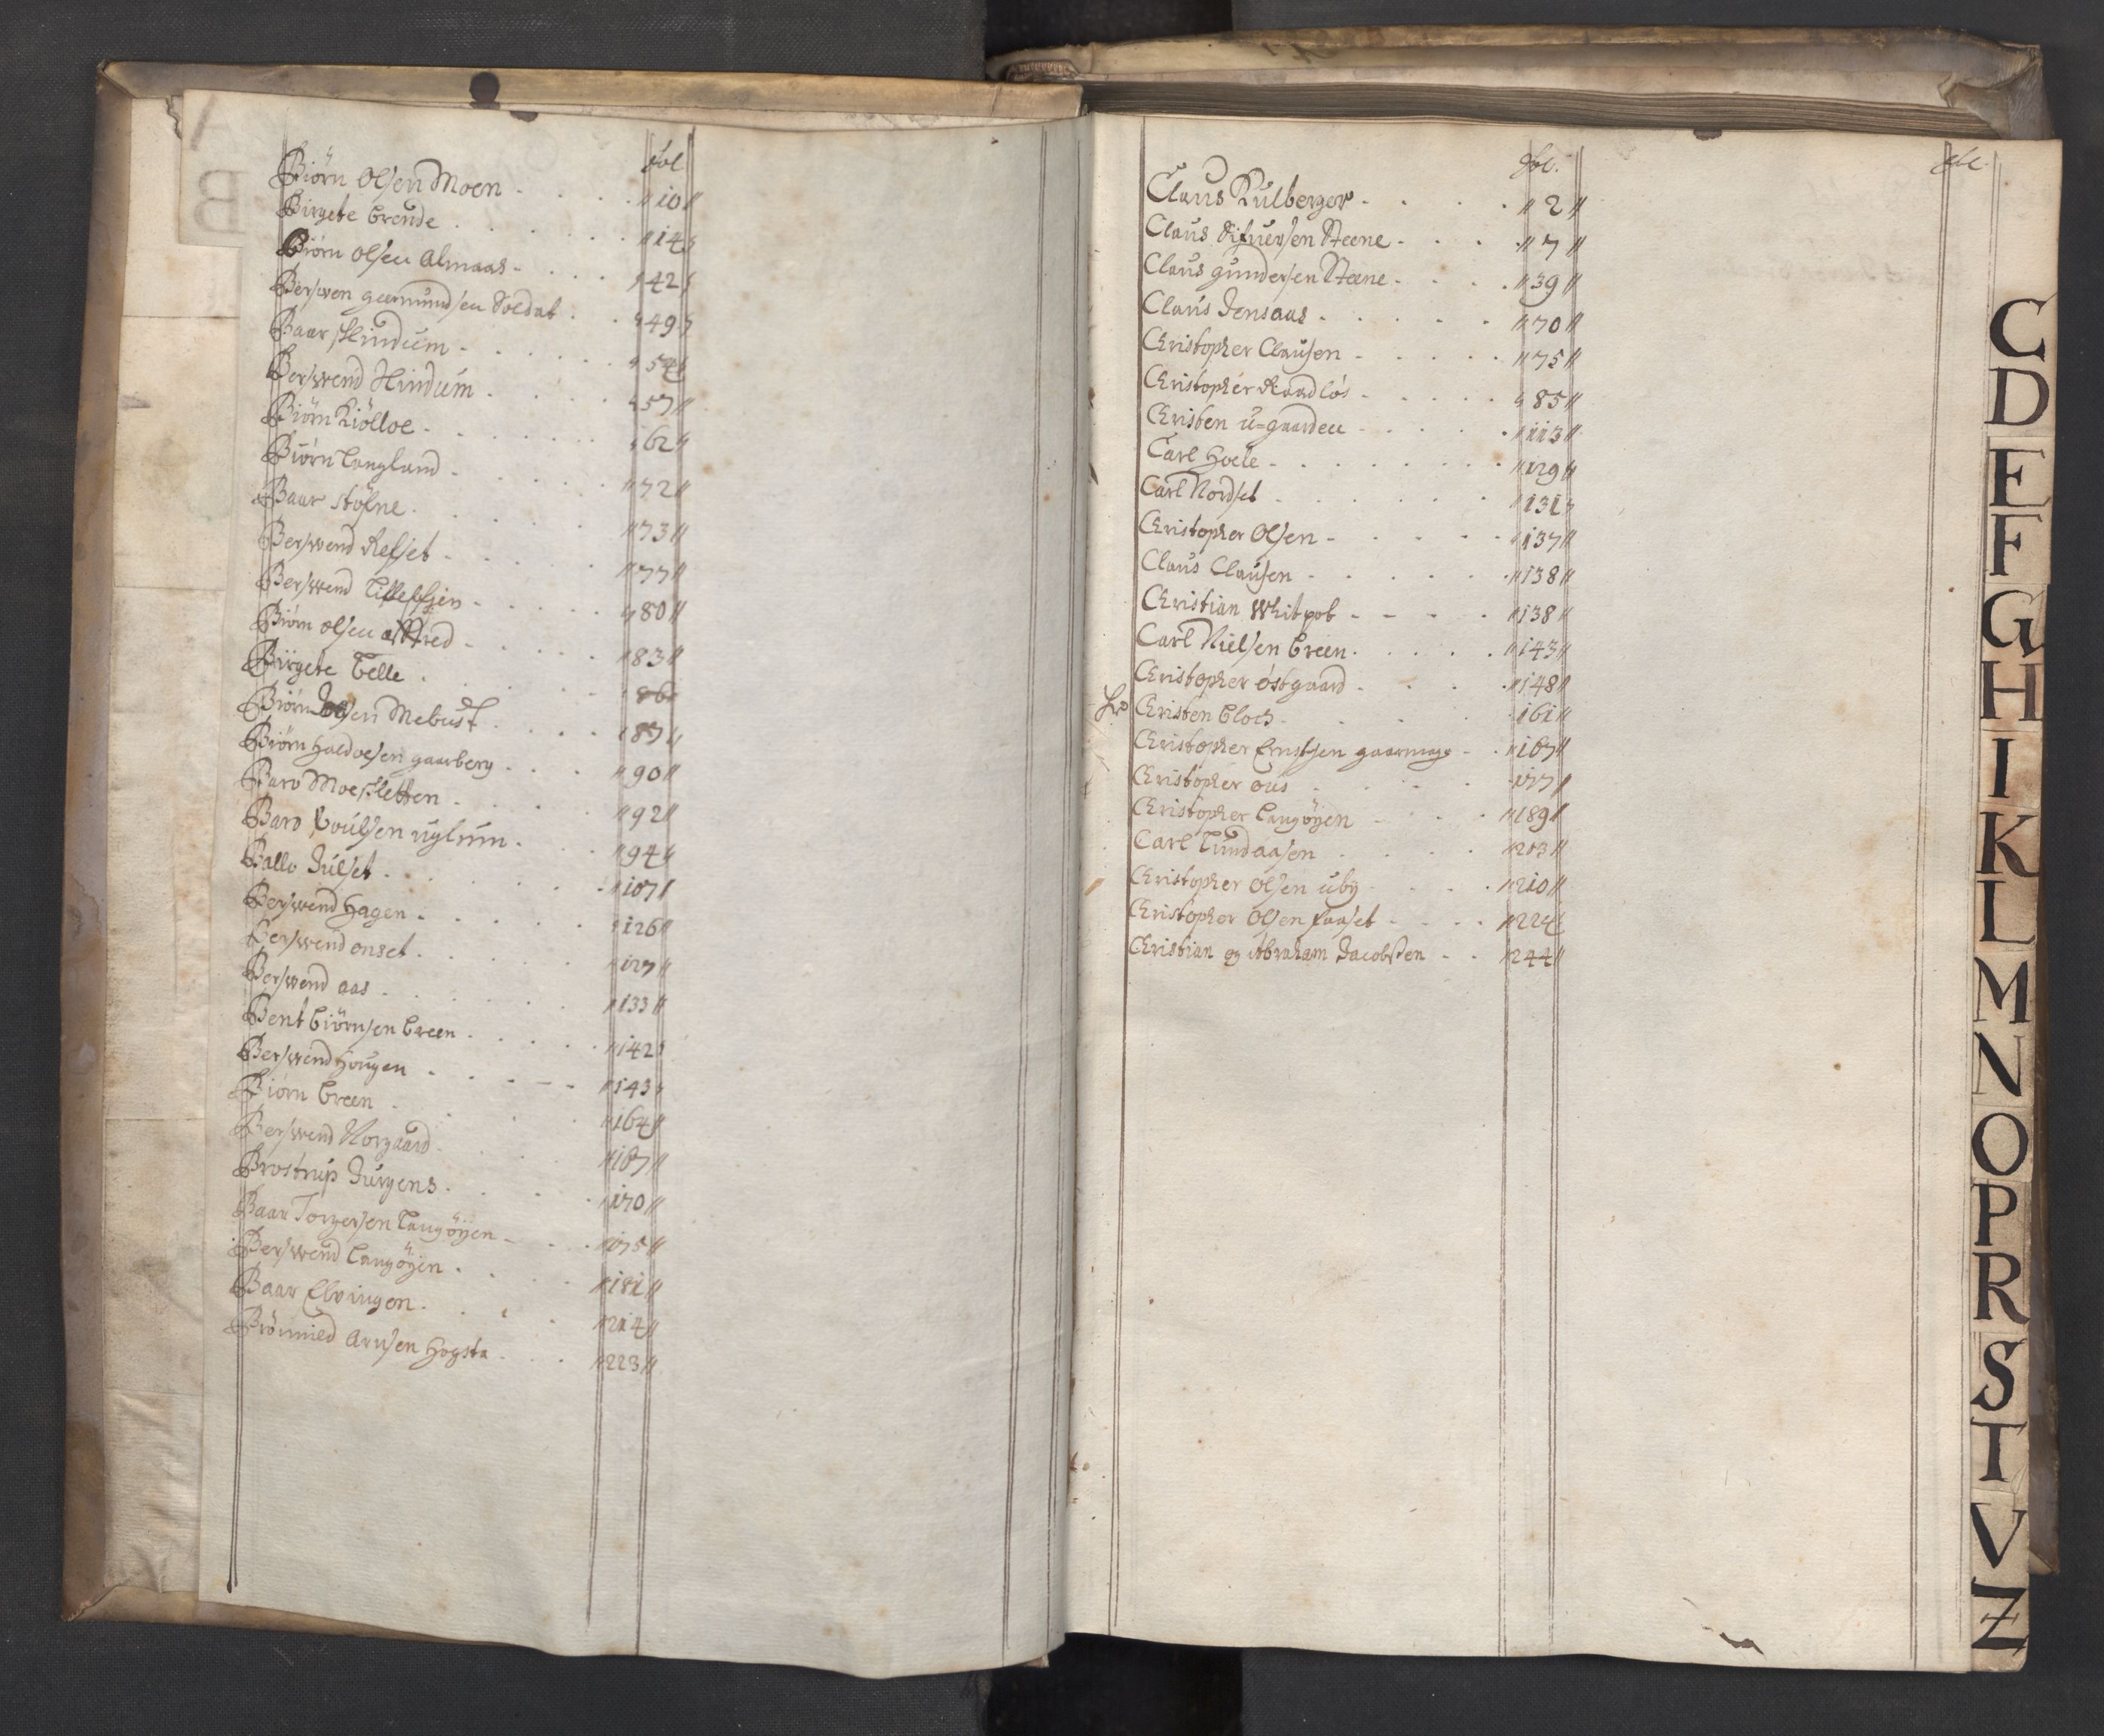 fol
Biörn Olsen Moen - 10
Birgete brende 14
Biörn Olsen Almaas - 42
Berswen geermundsen Soldat 49
Baar Hindum - 54
Berswend Hindum 57
Biörn Kiölloe - 62
Biörn Langland 72
Baar Stölne 73
Berswend Refset - 77
Berswend - 80
Biörn Olsen - 83
Birgete Telle 86
Biörn Mebust 87
Biörn Haldoesen gaarberg 90
Baro Moesletten 92
Baro Poulsen uglum 94
Ballo Julset 107
Berswend Hagen 126
Berswend onset 127
Berswend aas 133
Bent biörnsen breen 142
Berswend Hougen 143
Biörn breen 164
Berswend Norgaard 167
Brostrup Jurgens 170
Baar Torgersen Langöÿen - 175
Berswend Langöÿen 181
Baar Elvingen 214
Arnsen Hogsta 223
fol.
fol.
Claus Kulberger - 2
Claus Sifuersen Steene - 7
Claus gundersen Steene - 39
Claus Jensaas 70
Christopher Clausen - 75
Christopher Raadlös - 85
Christen u=gaarden - 113
Carl Hoele - 129
Carl Nordset - 131
Christopher Olsen - 137
Claus Clausen - 138
Christian Whitpot - 138
Carl Nielsen breen 143
Christopher östgaard 148
Hr Christen bloch 161
Christopher Ernstsen - 167
Christopher ous 177
Christopher Langöÿen 189
Carl Tundaasen 203
Christopher Olsen uby 210
Christopher Olsen faaset - 224
Christian og Abraham Jacobsen - 244
A
B
C
D
E
F
G
H
I
K
L
M
N
O
P
R
S
T
V
Z